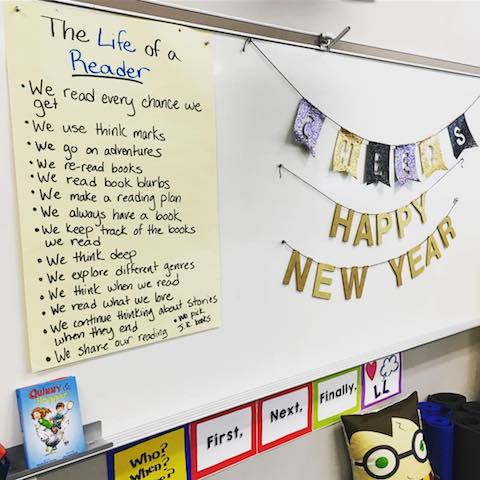 The Life of a
Reader
• We read every chance we
get
• We use think marks
• We go on adventures
• We re-read books
• We read book blurbs
• We make a reading plan
• We always have a book
• We keep track of the books
we read
• We think deep
• We explore different genres
• We think when we read
• We read what we love
• We continue thinking about stories
when they end
• We pick
J.R. books
• We share our reading
CHEERS
HAPPY
NEW YEAR
Who?
When?
First,
Next,
Finally,
I ❤ LL